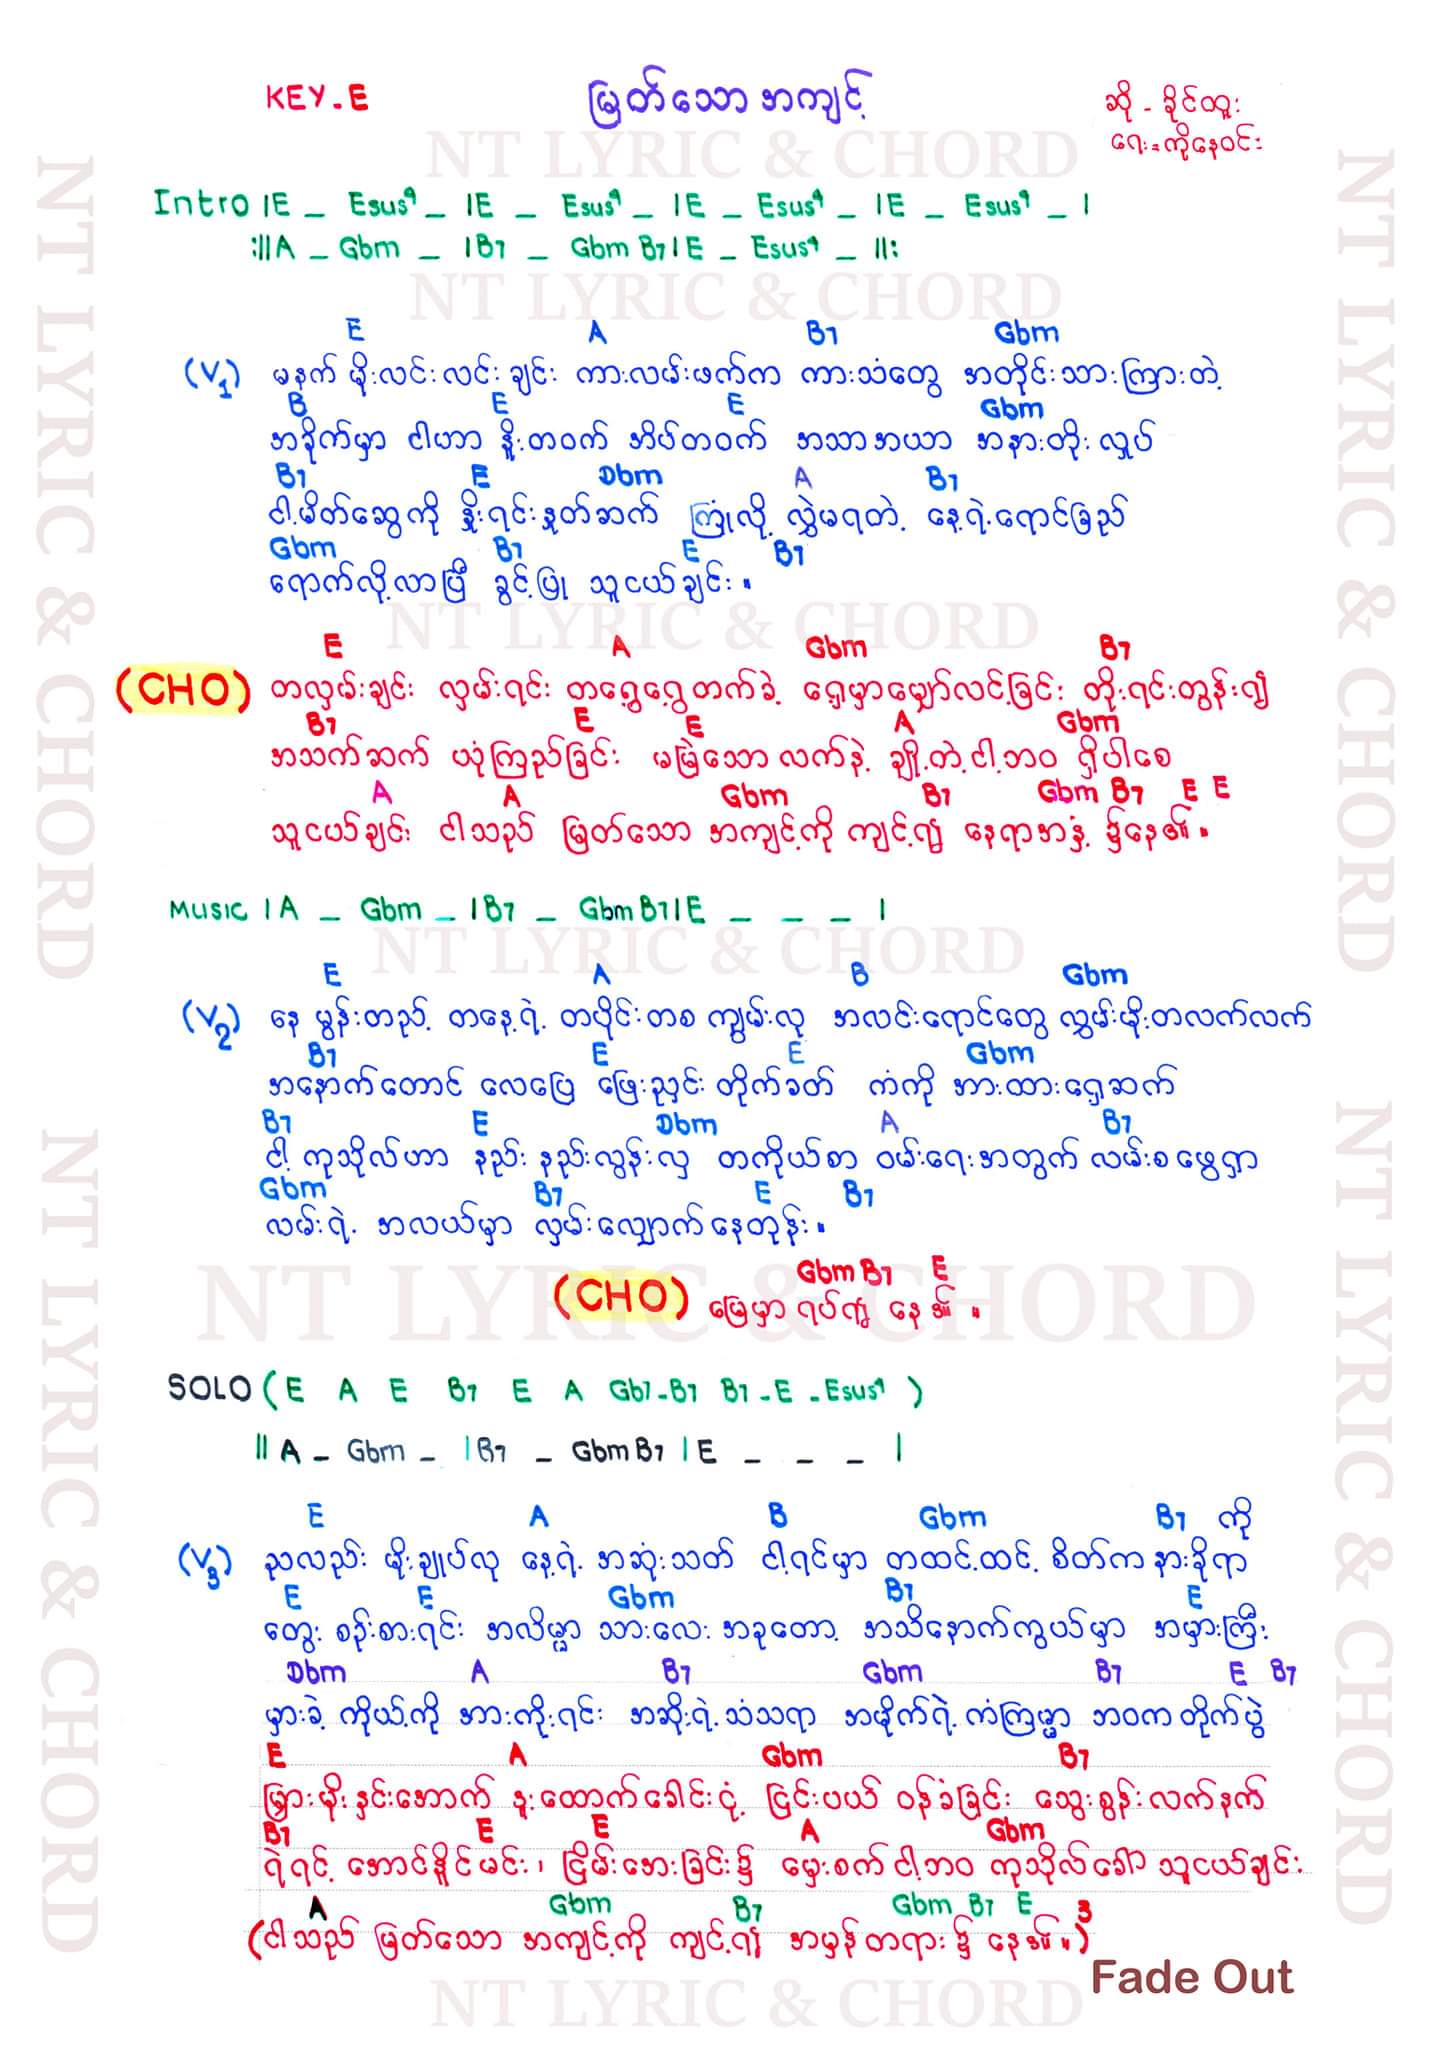 KEY - E
မြတ်သော အကျင့်
ဆို - ခိုင်ထူး
ရေး = ကိုနေဝင်း
NT LYRIC & CHORD
Intro |E _ Esus4 _ |E _ Esus4 _ |E _ Esus4 _ |E _ Esus4 _ |
:||A _ Gbm _ |B7 _ Gbm B7|E _ Esus4 _ ||:
NT LYRIC & CHORD
E A B7 Gbm
(V1) မနက် မိုးလင်းလင်းချင်း ကားလမ်းဖက်က ကားသံတွေ အတိုင်းသားကြားတဲ့
B E E Gbm
အခိုက်မှာ ငါဟာ နိုးတဝက် အိပ်တဝက် အသာအယာ အနားတိုးလှုပ်
B7 E Dbm A B7
ငါ့မိတ်ဆွေကို နှိုးရင်းနှုတ်ဆက် ကြုံလို့ လွှဲမရတဲ့ နေ့ရဲ့ရောင်ခြည်
Gbm B7 E B7
ရောက်လို့လာပြီ ခွင့်ပြု သူငယ်ချင်း။
NT LYRIC & CHORD
E A Gbm B7
(CHO) တလှမ်းချင်း လှမ်းရင်း တရွေ့ရွေ့တက်ခဲ့ ရှေ့မှာမျှော်လင့်ခြင်း တိုးရင်းတွန်း၍
B7 E E A Gbm
အသက်ဆက် ယုံကြည်ခြင်း မမြဲသော လက်နဲ့ ချို့တဲ့ငါ့ဘဝ ရှိပါစေ
A A Gbm B7 Gbm B7 E E
သူငယ်ချင်း ငါသည် မြတ်သော အကျင့်ကို ကျင့်လျှံ နေရာအနှံ့ ၌နေ၏။
MUSIC |A _ Gbm _ |B7 _ Gbm B7|E _ _ _ |
NT LYRIC & CHORD
E A B Gbm
(V2) နေ မွန်းတည့် တနေ့ရဲ့ တပိုင်းတစ ကျွမ်းလု အလင်းရောင်တွေ လွှမ်းမိုးတလက်လက်
B7 E E Gbm
အနောက်တောင် လေပြေ ဖြေးညှင်း တိုက်ခတ် ကံကို အားထားရှေ့ဆက်
B7 E Dbm A B7
ငါ့ ကုသိုလ်ဟာ နည်း နည်းလွန်းလှ တကိုယ်စာ ဝမ်းရေးအတွက် လမ်းစ ဖွေရှာ
Gbm B7 E B7
လမ်းရဲ့ အလယ်မှာ လှမ်းလျှောက်နေတုန်း။
Gbm B7 E
(CHO) မြေမှာ ရပ်လျှံ နေ၏။
NT LYRIC & CHORD
SOLO (E A E B7 E A Gb7-B7 B7-E-Esus4)
||A _ Gbm _ |B7 _ Gbm B7 |E _ _ _ |
E A B Gbm B7 ကို
(V3) ညလည်း မိုးချုပ်လု နေ့ရဲ့ အဆုံးသတ် ငါ့ရင်မှာ တထင့်ထင့် စိတ်က နားခိုရာ
E E Gbm B7 E
တွေး စဉ်းစားရင်း အလိမ္မာ သားလေး အခုတော့ အသိနောက်ကွယ်မှာ အမှားကြီး
Dbm A B7 Gbm B7 E B7
မှားခဲ့ ကိုယ့်ကို အားကိုးရင်း အဆိုးရဲ့သံသရာ အမိုက်ရဲ့ ကံကြမ္မာ ဘဝက တိုက်ပွဲ
E A Gbm B7
မြှားမိုး နှင်းအောက် ဒူးထောက်ခေါင်းငုံ့ ငြင်းပယ် ဝန်ခံခြင်း သွေးစွန်းလက်နက်
B7 E E A Gbm
ရဲရင့် အောင်နိုင်မင်း၊ ငြိမ်းအေးခြင်း၌ မွေးစက် ငါ့ဘဝ ကုသိုလ်ခေါ် သူငယ်ချင်း
A Gbm B7 Gbm B7 E
(ငါသည် မြတ်သော အကျင့်ကို ကျင့်လျှံ အမှန်တရား၌ နေ၏။)3
Fade Out
NT LYRIC & CHORD
NT LYRIC & CHORD
NT LYRIC & CHORD
NT LYRIC & CHORD
NT LYRIC & CHORD